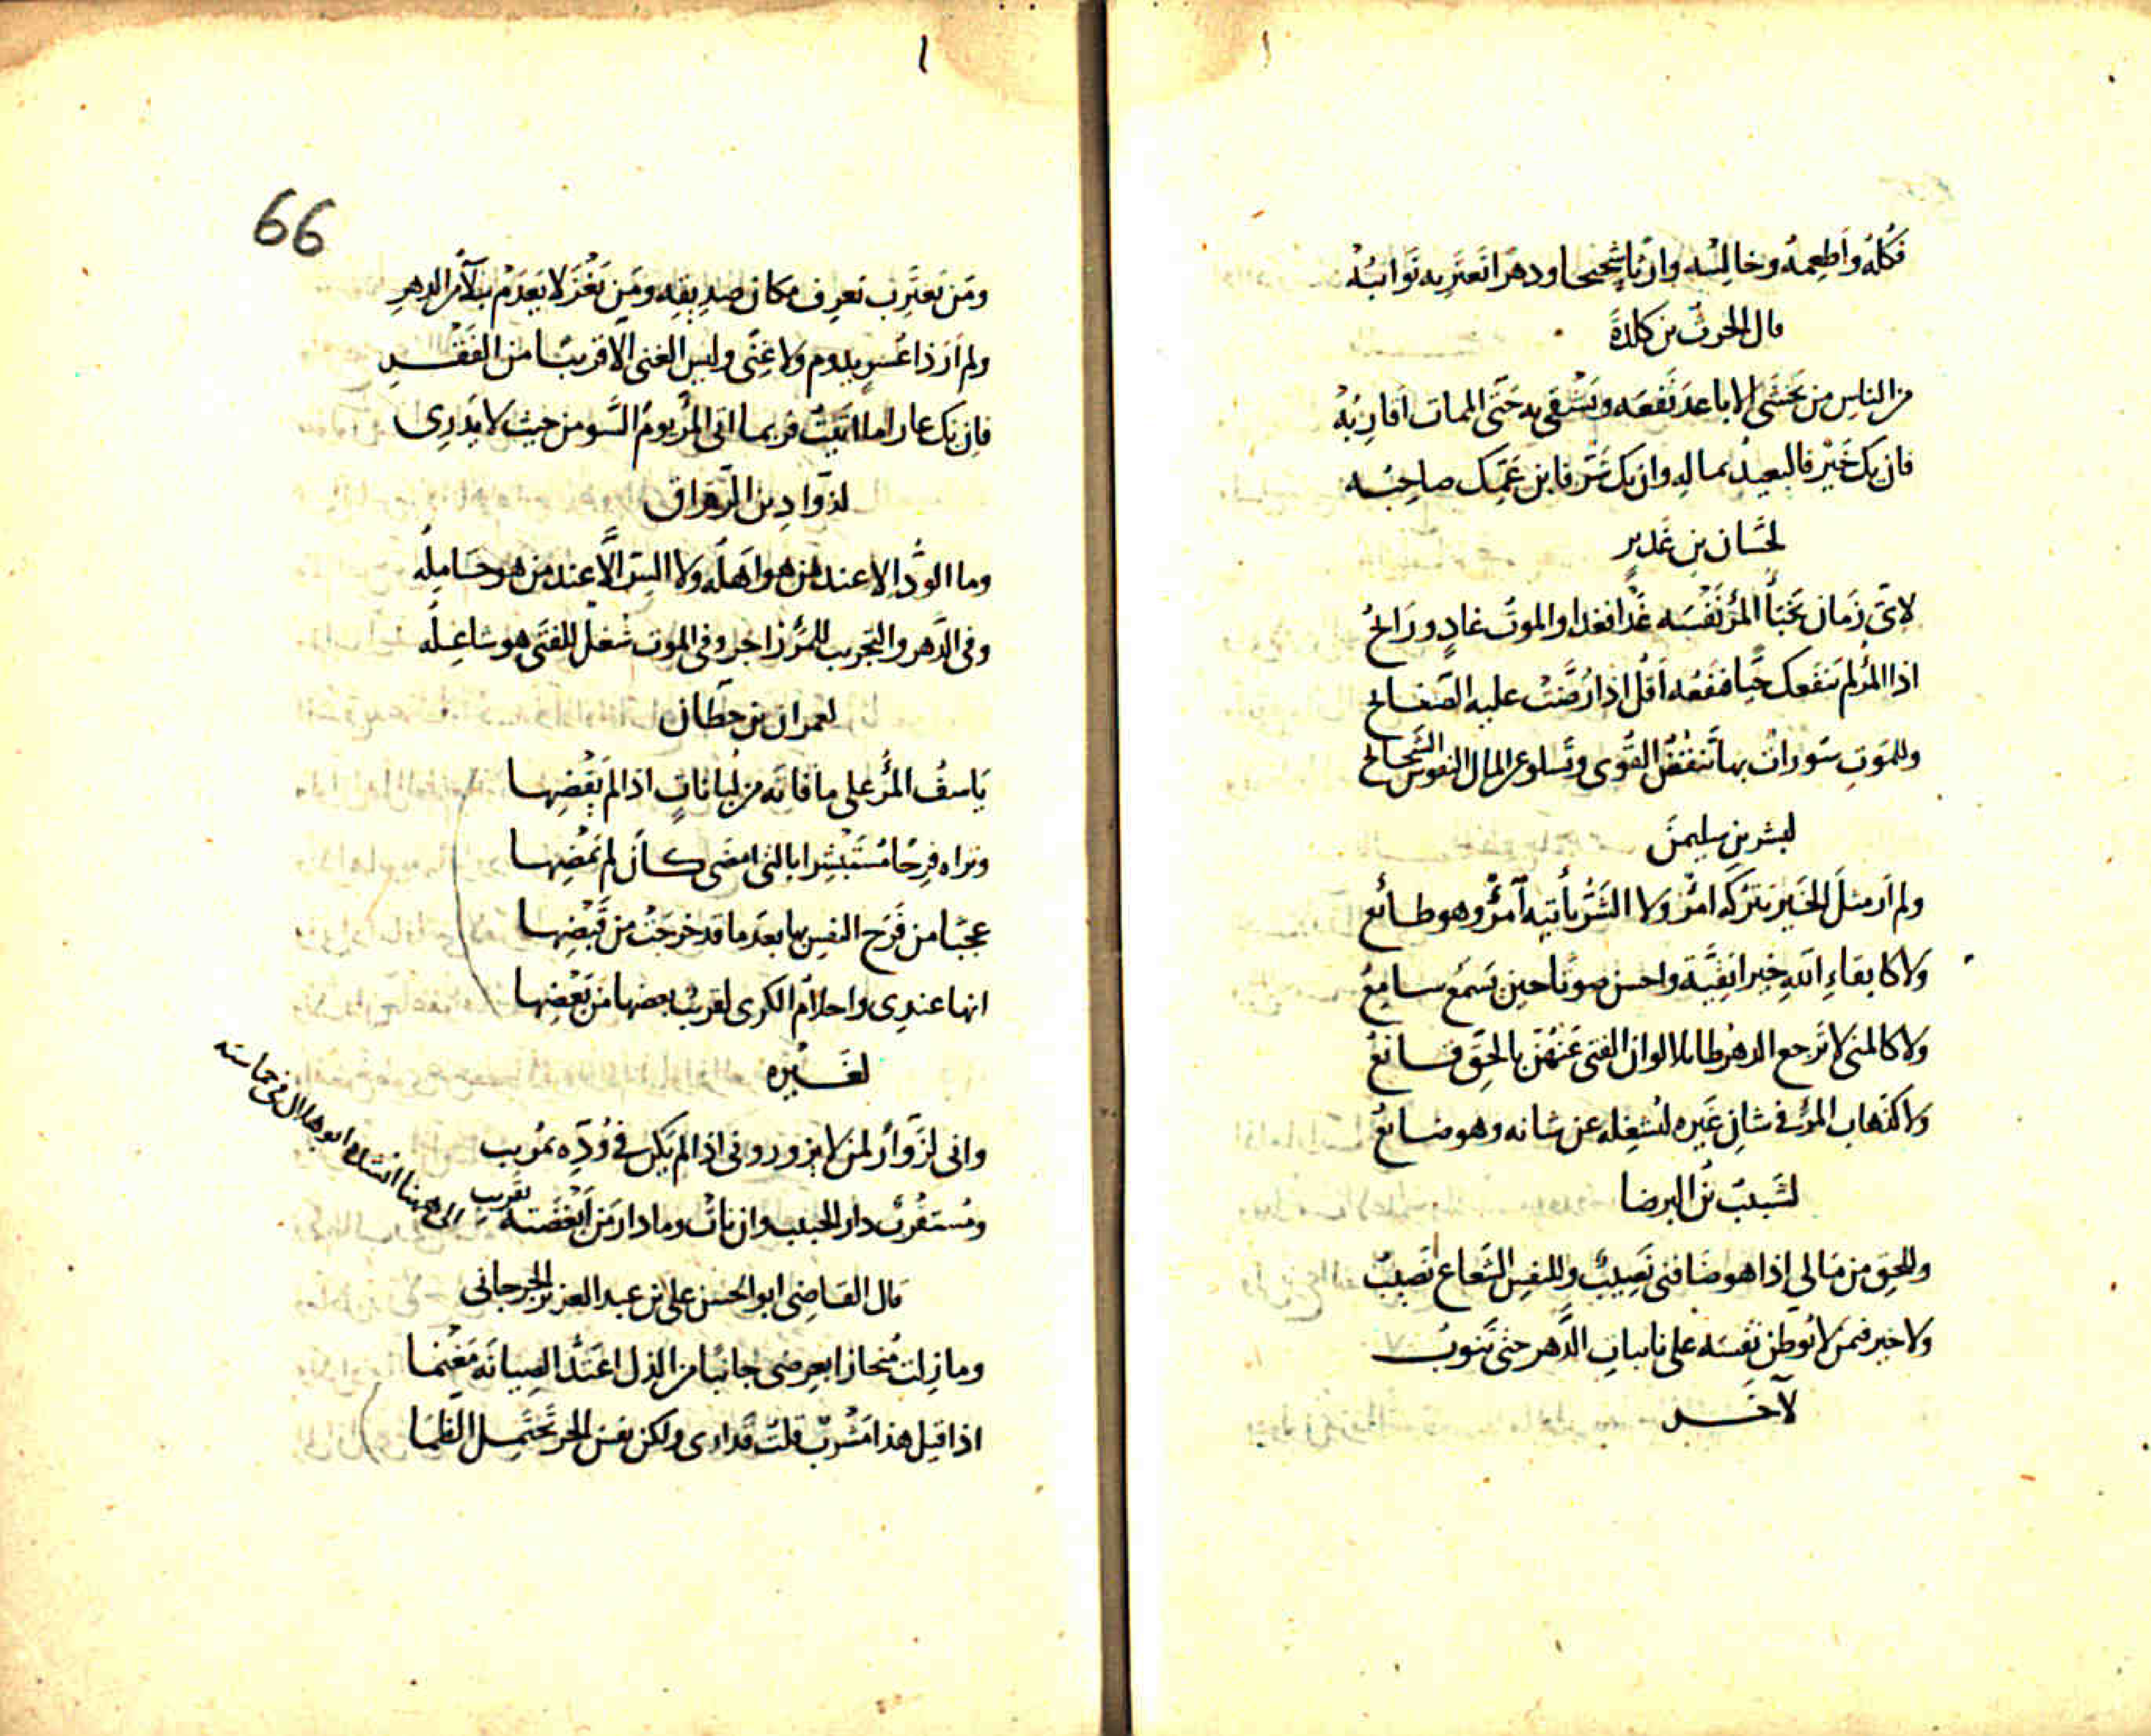 فكُلهُ وأطعِمهُ وخالِسْه وارثا شحيحا ودهرًا تعتَرِيه نَوائبُهْ
قال الحرث بن كلدةَ
من الناسِ من يَغشَى الاباعدَ نَفعُه ويَشْقى به حَتَّى الممات أقارِبُهْ
فان يك خَيْر فالبعيدُ يناله وان يك شَرّ فابن عَمِّك صاحِبُه
لحَسّان بن غَدير
لايّ زَمان يَخبَأُ المرُ نَفْسَه غَدًا فغدا والموتُ غادٍ ورَائحُ
اذا المرُ لم يَنفَعك حَيًّا فنَفعُه أقلُ اذا رُصَّتْ عليه الصَّفائح
وللمَوتِ سَوراتٌ بها تَنقُضُ القُوى وتَسلو عن المال النفوس الشَّحائح
لبشر بن سليمنَ
ولم أرَ مثلَ الخَير يَترُكه امرُؤ ولا الشَرّ يأتيه آمرُؤ وهو طائع
ولا كاتقاءِ اللهِ خيرا بَقِيَّة واحسن صوتًا حين يَسمَع سامِعُ
ولا كالمنى لا تَرجع الدهرَ طائلا لو ان الفتى عَنهُنّ بالحَقّ قانعُ
ولا كذَهاب المرُ في شانِ غَيرِه ليُشغِله عن شانه وهو ضائعُ
لشَبيب بن البرصا
وللحَقِّ من مَالي إذا هو ضافني نَصِيبٌ وللنفسِ الشَعاع نَصِيبُ
ولا خير فيمن لا يُوطن نفسَه على نائباتِ الدَّهر حتى تَنوبُ
لآخَر
66
ومَن يَغتَرِب يَعرِف مكان صديقِه ومَن يَغْزَ لا يَعدَمْ بلآءً من الدهرِ
ولم أرَ ذا عُسرٍ يدوم ولا غِنًى وليس الغنى الا قريبًا من الفَقْرِ
فان يك عارا ما اتَيتُ فربما اتى المرَ يومُ السَّو من حيث لا يَدرِى
لذوّادِ بن الرقراق
وما الودُّ إلا عند من هو أهله ولا السرُّ الَّا عند من هو حَامِلُه
وفى الدَّهر والتجريب للمَرْ زاجر وفى الموت شُغلٌ للفتَى هو شاغِلُه
لعمران بن حطان
يَاسفُ المرُْ على ما فاتَه من لُباناتٍ اذا لم يَقْضِها
وتراه فرِحًا مُستَبْشِرا بالتى امضَى كأن لم يُمضِها
عجبًا من فَرَح النفسِ بها بعدَ ما قد خرَجَتْ من قَبْضِها
انها عندِى واحلاُم الكرى لقريبٌ بعضها من بَعْضِها
لغَيره
وانى لزَوَّارٌ لمن لا يزورونى اذا لم يكن فى وُدِّه بمُرِيب
ومُستقرِبٌ دار الحبيب وان نات وما دار من أبْغَضتُه بقَريب
الى ههنا انشده ابو هلال فى حماسته
قال القاضِى ابو الحسن على بن عبد العزيز الجرجانى
وما زِلتُ مُنحازا بعِرضى جانبًا من الذل اعْتَدُّ الصِيانَة مَغنَما
اذا قيل هذا مَشْرَبٌ قلتُ قد ارى ولكن نَفسَ الحر تَحتَمِل الظَّمَا